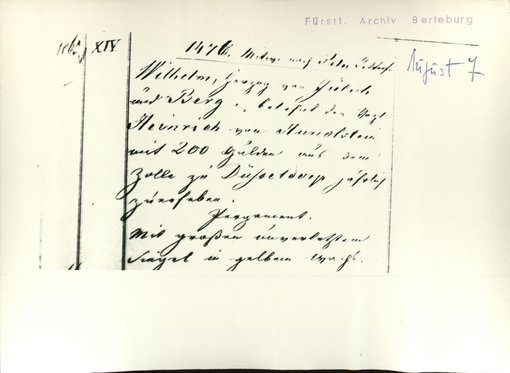 Fürstl. Archiv Berleburg
XIV
1476. Mitw. nach
August 7.
Wilhelm, Herzog von Jülich
und Berg, belehnt den Vogt
Heinrich von
mit 200 Gulden aus dem
Zolle zu Düsseldorp jährlich
zu erheben.
Pergament.
Mit großen unverletztem
Siegel in gelbem Wachs.